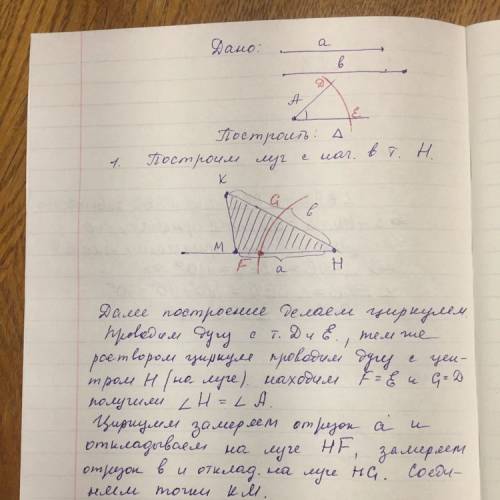 Дано: a
в
D
A
E
Построить: Δ
1. Построим луч с нач. в т. H.
K
G
в
M
F
H
a
Далее построение делаем циркулем
Проводим дугу с т. D и E., тем же
раствором циркуля проводим дугу с цен-
тром H (на луче). находим F = E и G = D
получили ∠H = ∠A.
Циркулем замеряем отрезок a и
откладываем на луче HF, замеряем
отрезок в и отклад. на луче HG. Соеди-
няем точки KM.